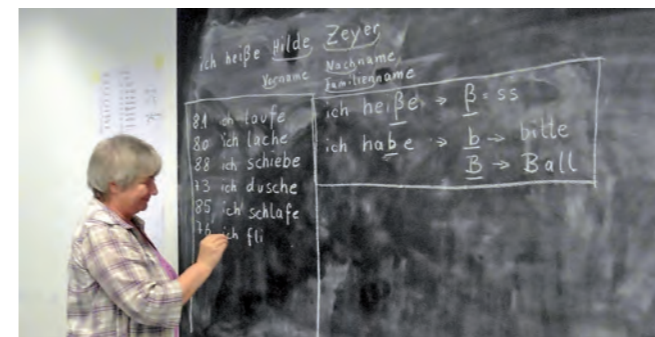 ich heiße Hilde Zeyer
Vorname Nachname
Familienname
81 ich laufe
80 ich lache
88 ich schiebe
73 ich dusche
85 ich schlafe
76 ich fli
ich heiße → β = ss
ich habe → b → bitte
B → Ball